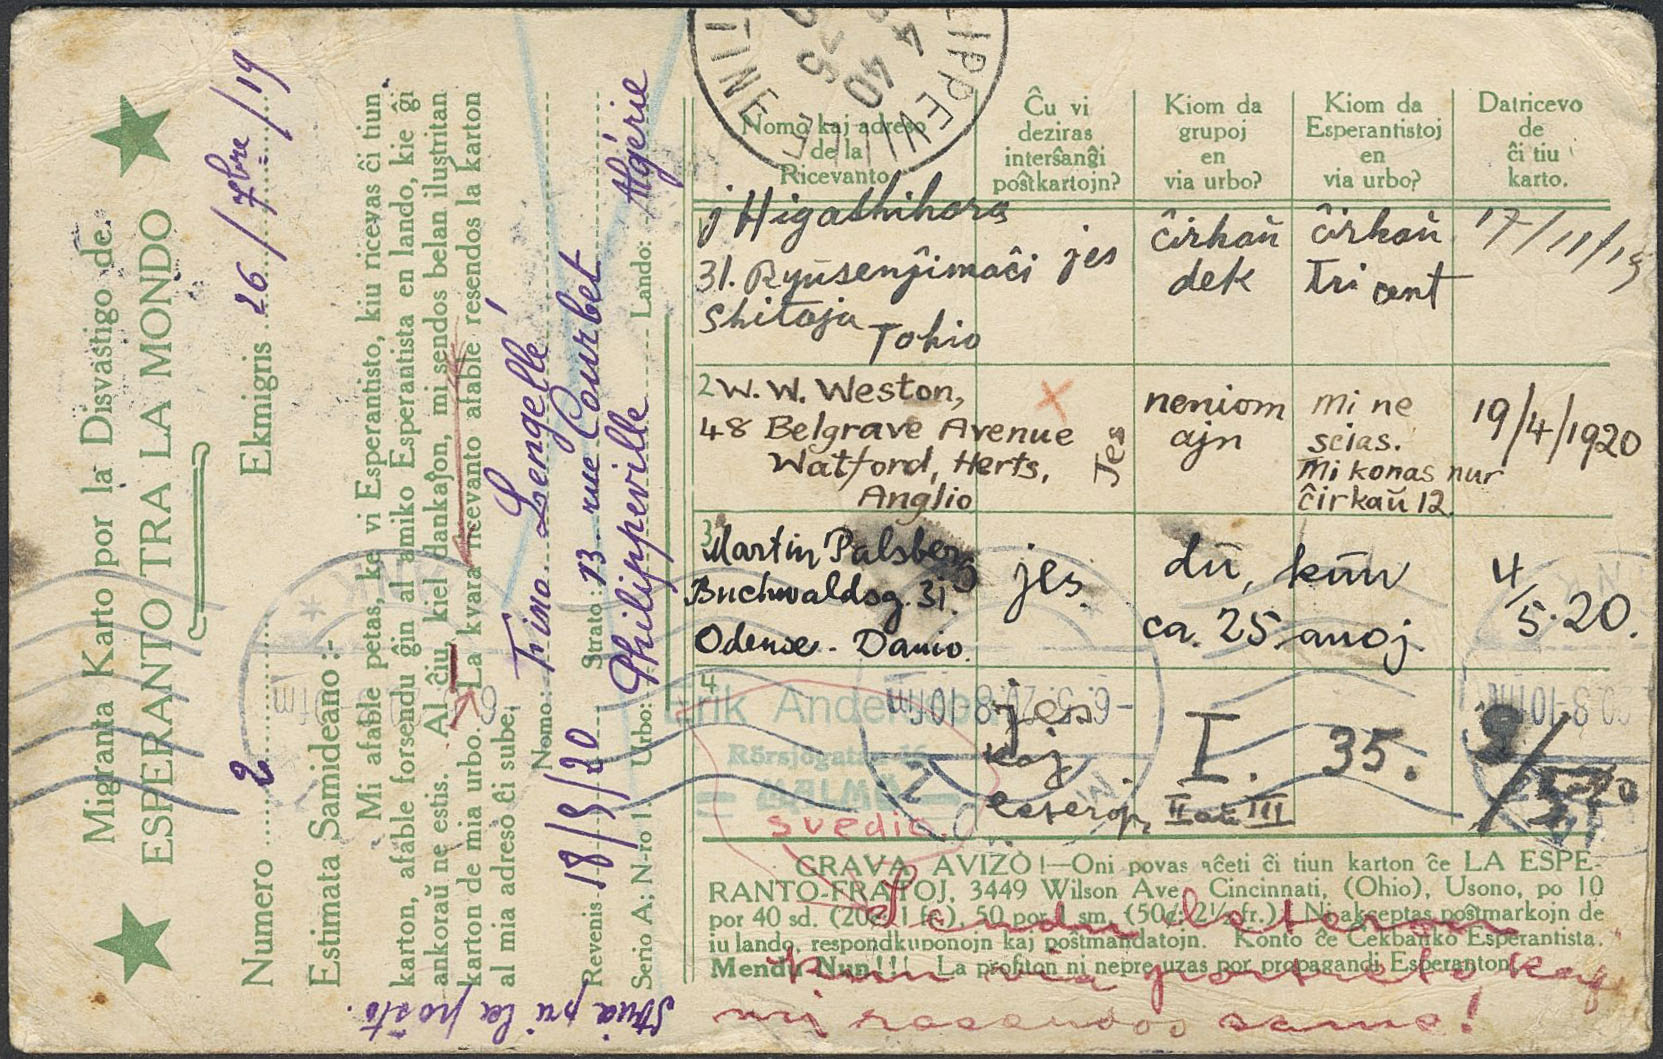 Migranta Karto por la Disvastigo de
ESPERANTO TRA LA MONDO
Numero 2 Ekmigris 26/7bre/19
Estimata Samideano:-
Mi afable petas, ke vi Esperantisto, kiu ricevas ĉi tiun
karton, afable forsendu ĝin al amiko Esperantista en lando, kie ĝi
ankoraŭ ne estis. Al ĉiu, kiel dankaĵon, mi sendos belan ilustritan
karton de mia urbo. La kvara ricevanto afable resendos la karton
al mia adreso ĉi sube,
Nomo: Trino Lengellé
Revenis 18/5/20 Strato: 13 rue Courbet
Serio A; N-ro 1. Urbo: Philippeville Lando: Algérie
poŝto.
40
Nomo kaj adreso
de la
Ricevanto
Ĉu vi
deziras
interŝanĝi
poŝtkartojn?
Kiom da
grupoj
en
via urbo?
Kiom da
Esperantistoj
en
via urbo?
Datricevo
de
ĉi tiu
karto.
J Higashihara
31. Ryusenĵimaĉi
Shitaja
Tohio
jes
ĉirkaŭ
dek
ĉirkaŭ
tri cent
17/11/19
2 W. W. Weston,
48 Belgrave Avenue
Watford, Herts,
Anglio
Jes
neniom
ajn
mi ne
scias.
Mi konas nur
ĉirkaŭ 12.
19/4/1920
3 Martin Palsberg
Buchwaldsg. 31.
Odense - Danio.
jes.
du, kun
ca. 25 anoj
4/5.20.
4
Erik Anderson
Rörsjögatan 16
MALMÖ
svedio.
jes
kaj
leteroj.
I.
II aŭ III
35.
GRAVA AVIZO!—Oni povas aĉeti ĉi tiun karton ĉe LA ESPE-
RANTO-FRATOJ, 3449 Wilson Ave., Cincinnati, (Ohio), Usono, po 10
por 40 sd. (20c, 1 fr.), 50 por 1 sm. (50c, 2½ fr.) Ni akceptas poŝtmarkojn de
iu lando, respondkuponojn kaj poŝtmandatojn. Konto ĉe Ĉekbanko Esperantista.
Mendu Nun!!! La profiton ni nepre uzas por propagandi Esperanton.
Sendu leteron
kun via portreto kaj
mi same!